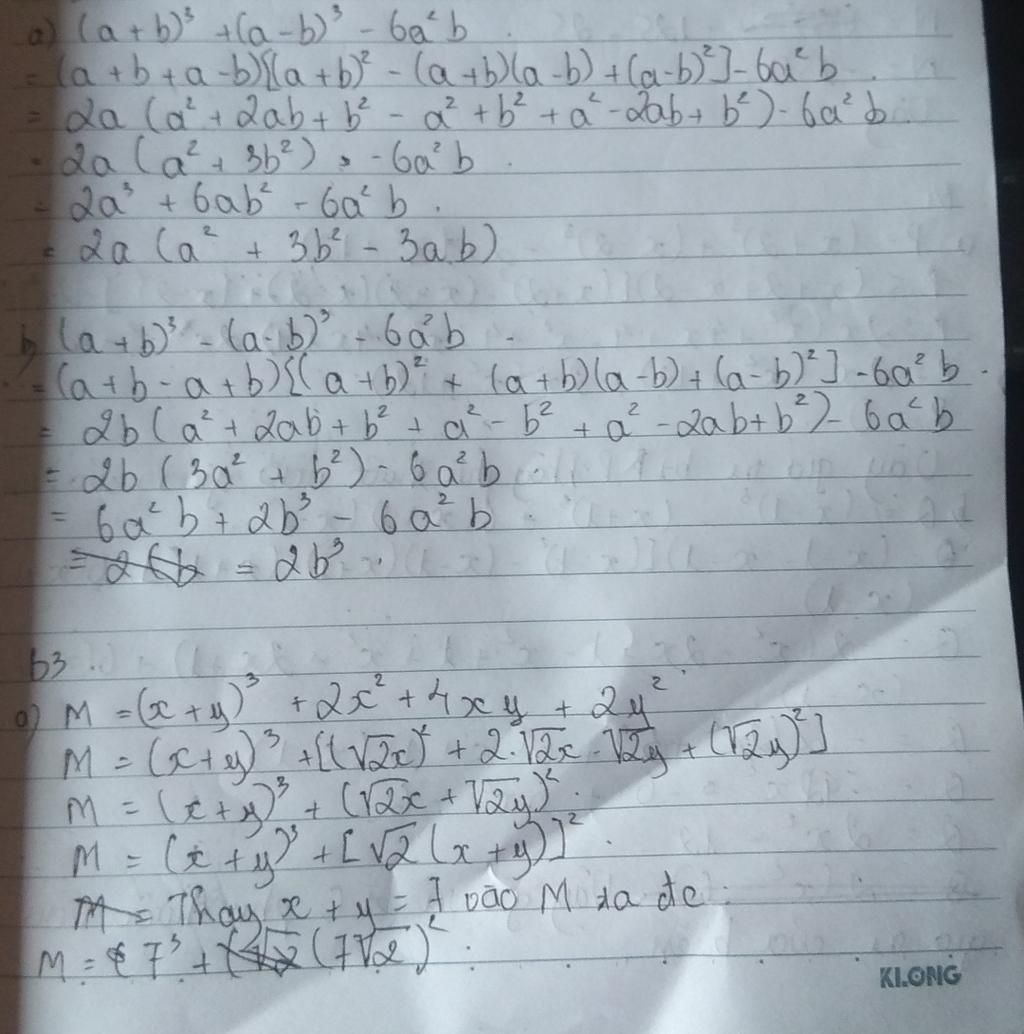 a) (a+b)³ + (a-b)³ - 6a²b
= (a+b+a-b)[(a+b)² - (a+b)(a-b) + (a-b)²] - 6a²b
= 2a (a² + 2ab + b² - a² + b² + a² - 2ab + b²) - 6a²b
= 2a (a² + 3b²) - 6a²b
= 2a³ + 6ab² - 6a²b
= 2a (a² + 3b² - 3ab)
b) (a+b)³ - (a-b)³ - 6a²b
= (a+b-a+b)[(a+b)² + (a+b)(a-b) + (a-b)²] - 6a²b
= 2b (a² + 2ab + b² + a² - b² + a² - 2ab + b²) - 6a²b
= 2b (3a² + b²) - 6a²b
= 6a²b + 2b³ - 6a²b
= 2b³
b3
a) M = (x+y)³ + 2x² + 4xy + 2y²
M = (x+y)³ + [(√2x)² + 2.√2x.√2y + (√2y)²]
M = (x+y)³ + (√2x + √2y)²
M = (x+y)³ + [√2(x+y)]²
Thay x + y = 7 vào M ta đc
M = 7³ + (7√2)²
KLONG